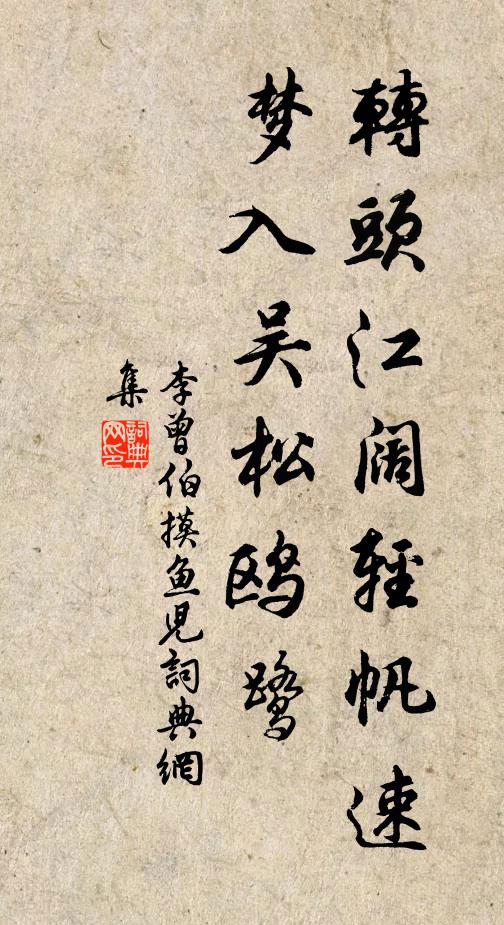 轉頭江阔輕帆速
梦入吴松鸥鹭
李曾伯摸鱼児詞典網
集
詞典网印